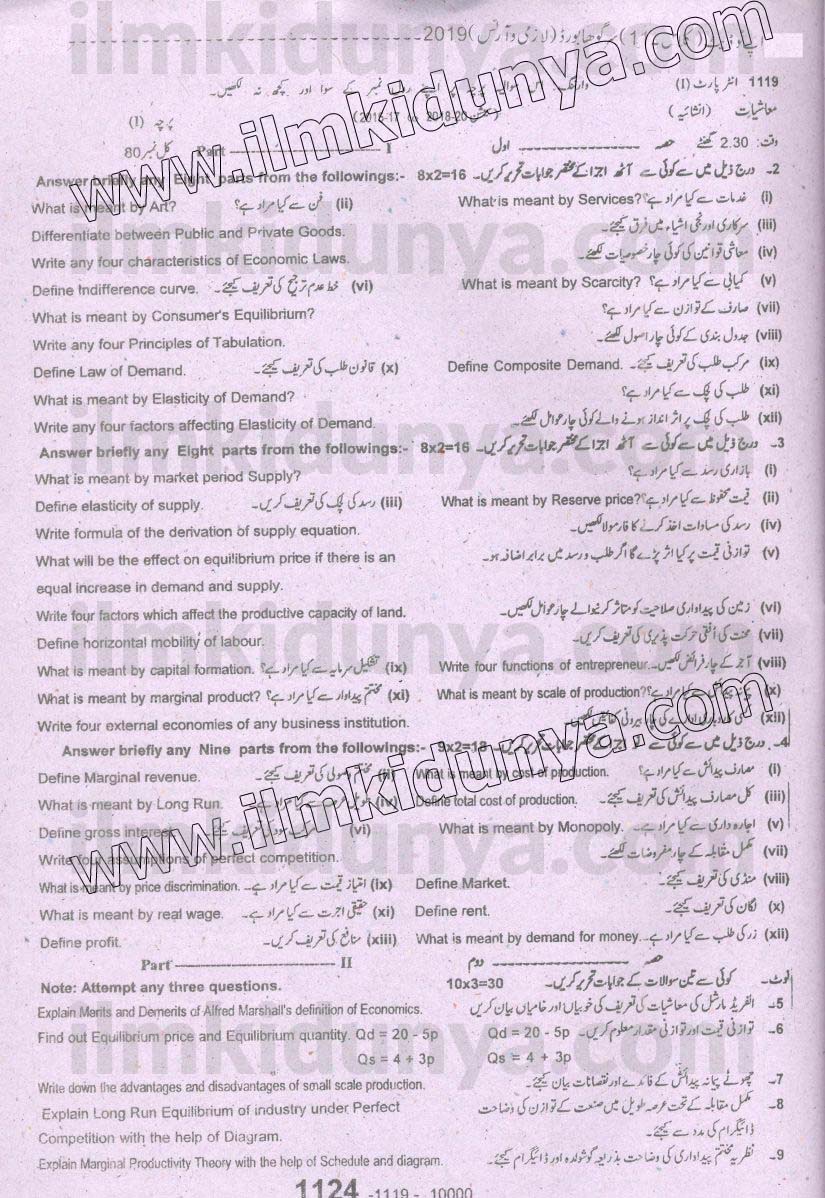 2019 (لازمی و آرٹس)
1119 انٹر پارٹ (I)
معاشیات (انشائیہ) پرچہ (I)
وقت: 2.30 گھنٹے حصہ ---------- اول Part ---------- I کل نمبر 80
Answer briefly any Eight parts from the followings:- 8x2=16 2۔ درج ذیل میں سے کوئی سے آٹھ اجزا کے مختصر جوابات تحریر کریں۔
What is meant by Art? (ii) فن سے کیا مراد ہے؟ What is meant by Services? (i) خدمات سے کیا مراد ہے؟
Differentiate between Public and Private Goods. (iii) سرکاری اور نجی اشیاء میں فرق کیجئے۔
Write any four characteristics of Economic Laws. (iv) معاشی قوانین کی کوئی چار خصوصیات لکھئے۔
Define Indifference curve. (vi) خط عدم ترجیح کی تعریف کیجئے۔ What is meant by Scarcity? (v) کمیابی سے کیا مراد ہے؟
What is meant by Consumer's Equilibrium? (vii) صارف کے توازن سے کیا مراد ہے؟
Write any four Principles of Tabulation. (viii) جدول بندی کے کوئی چار اصول لکھئے۔
Define Law of Demand. (x) قانون طلب کی تعریف کیجئے۔ Define Composite Demand. (ix) مرکب طلب کی تعریف کیجئے۔
What is meant by Elasticity of Demand? (xi) طلب کی لچک سے کیا مراد ہے؟
Write any four factors affecting Elasticity of Demand. (xii) طلب کی لچک پر اثر انداز ہونے والے کوئی چار عوامل لکھئے۔
Answer briefly any Eight parts from the followings:- 8x2=16 3۔ درج ذیل میں سے کوئی سے آٹھ اجزا کے مختصر جوابات تحریر کریں۔
What is meant by market period Supply? (i) بازاری رسد سے کیا مراد ہے؟
Define elasticity of supply. (iii) رسد کی لچک کی تعریف کریں۔ What is meant by Reserve price? (ii) قیمت محفوظ سے کیا مراد ہے؟
Write formula of the derivation of supply equation. (iv) رسد کی مساوات اخذ کرنے کا فارمولا لکھیں۔
What will be the effect on equilibrium price if there is an (v) توازنی قیمت پر کیا اثر پڑے گا اگر طلب و رسد میں برابر اضافہ ہو۔
equal increase in demand and supply.
Write four factors which affect the productive capacity of land. (vi) زمین کی پیداواری صلاحیت کو متاثر کرنیوالے چار عوامل لکھیں۔
Define horizontal mobility of labour. (vii) محنت کی افقی حرکت پذیری کی تعریف کریں۔
What is meant by capital formation. (ix) تشکیل سرمایہ سے کیا مراد ہے؟ Write four functions of entrepreneur. (viii) آجر کے چار فرائض لکھیں۔
What is meant by marginal product? (xi) مختتم پیداوار سے کیا مراد ہے؟ What is meant by scale of production? (x) سے کیا مراد ہے؟
Write four external economies of any business institution. (xii)
Answer briefly any Nine parts from the followings:- 9x2=18 4۔ درج ذیل میں سے کوئی سے
Define Marginal revenue. (ii) کی تعریف کیجئے۔ What is meant by cost of production. (i) مصارف پیدائش سے کیا مراد ہے؟
What is meant by Long Run. (iv) Define total cost of production. (iii) کل مصارف پیدائش کی تعریف کیجئے۔
Define gross interest. (vi) What is meant by Monopoly. (v) اجارہ داری سے کیا مراد ہے۔
Write four assumptions of perfect competition. (vii) مکمل مقابلہ کے چار مفروضات لکھئے۔
What is meant by price discrimination. (ix) امتیاز قیمت سے کیا مراد ہے۔ Define Market. (viii) منڈی کی تعریف کیجئے۔
What is meant by real wage. (xi) حقیقی اجرت سے کیا مراد ہے۔ Define rent. (x) لگان کی تعریف کیجئے۔
Define profit. (xiii) منافع کی تعریف کریں۔ What is meant by demand for money. (xii) زر کی طلب سے کیا مراد ہے۔
Part ---------- II حصہ ---------- دوم
Note: Attempt any three questions. 10x3=30 نوٹ۔ کوئی سے تین سوالات کے جوابات تحریر کریں۔
Explain Merits and Demerits of Alfred Marshall's definition of Economics. 5۔ الفریڈ مارشل کی معاشیات کی تعریف کی خوبیاں اور خامیاں بیان کریں
Find out Equilibrium price and Equilibrium quantity. Qd = 20 - 5p Qd = 20 - 5p 6۔ توازنی قیمت اور توازنی مقدار معلوم کریں۔
Qs = 4 + 3p Qs = 4 + 3p
Write down the advantages and disadvantages of small scale production. 7۔ چھوٹے پیمانہ پیدائش کے فائدے اور نقصانات بیان کیجئے۔
Explain Long Run Equilibrium of industry under Perfect 8۔ مکمل مقابلہ کے تحت عرصہ طویل میں صنعت کے توازن کی وضاحت
Competition with the help of Diagram. ڈائیگرام کی مدد سے کیجئے۔
Explain Marginal Productivity Theory with the help of Schedule and diagram. 9۔ نظریہ مختتم پیداواری کی وضاحت بذریعہ گوشوارہ اور ڈائیگرام کیجئے۔
1124 -1119 - 10000
www.ilmkidunya.com
www.ilmkidunya.com
ilmkidunya.com
ilmkidunya.com
ilmkidunya.com
ilmkidunya.com
ilmkidunya.com
ilmkidunya.com